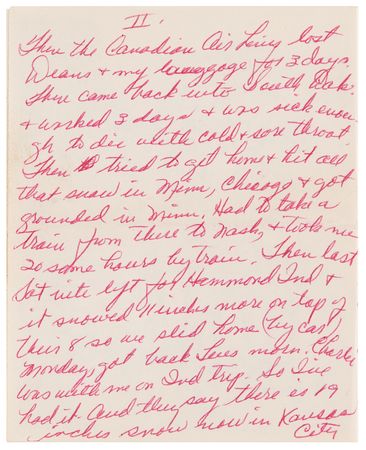 II.
Then the Canadian Air Lines lost
Deans & my luggage for 3 days.
Then came back into South Dak.
& worked 3 days & was sick enou-
gh to die with cold & sore throat.
Then tried to get home & hit all
that snow in Minn, Chicago & got
grounded in Minn. Had to take a
train from there to Nash, & took me
20 some hours by train. Then last
Sat nite left for Hammond Ind &
it snowed 11 inches more on top of
their 8 so we slid home (by car)
Monday, got back Tues morn. Charlie
was with me on Ind trip. So I've
had it. And they say there is 19
inches snow now in Kansas
City